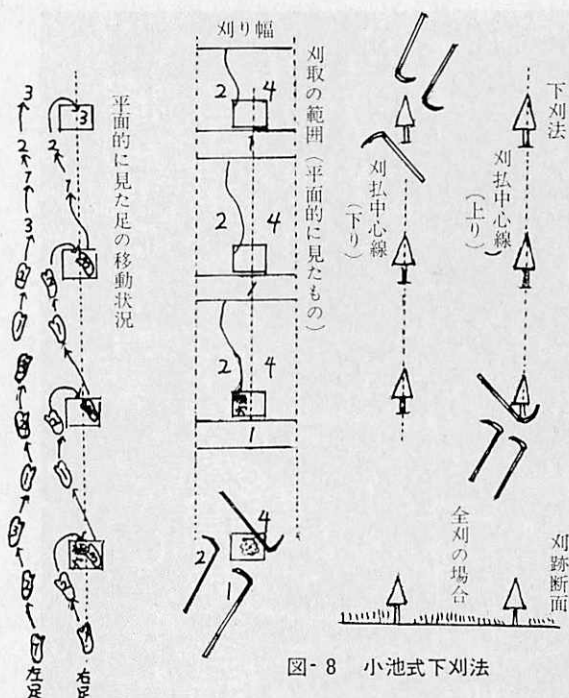 下刈法
刈払中心線
(上り)
刈払中心線
(下り)
全刈の場合
刈跡断面
刈り幅
刈取の範囲(平面的に見たもの)
2 4
1
2 4
1
2 4
1
4
2
1
平面的に見た足の移動状況
3
3
2
2
1
1
3
左足
右足
図-8 小池式下刈法